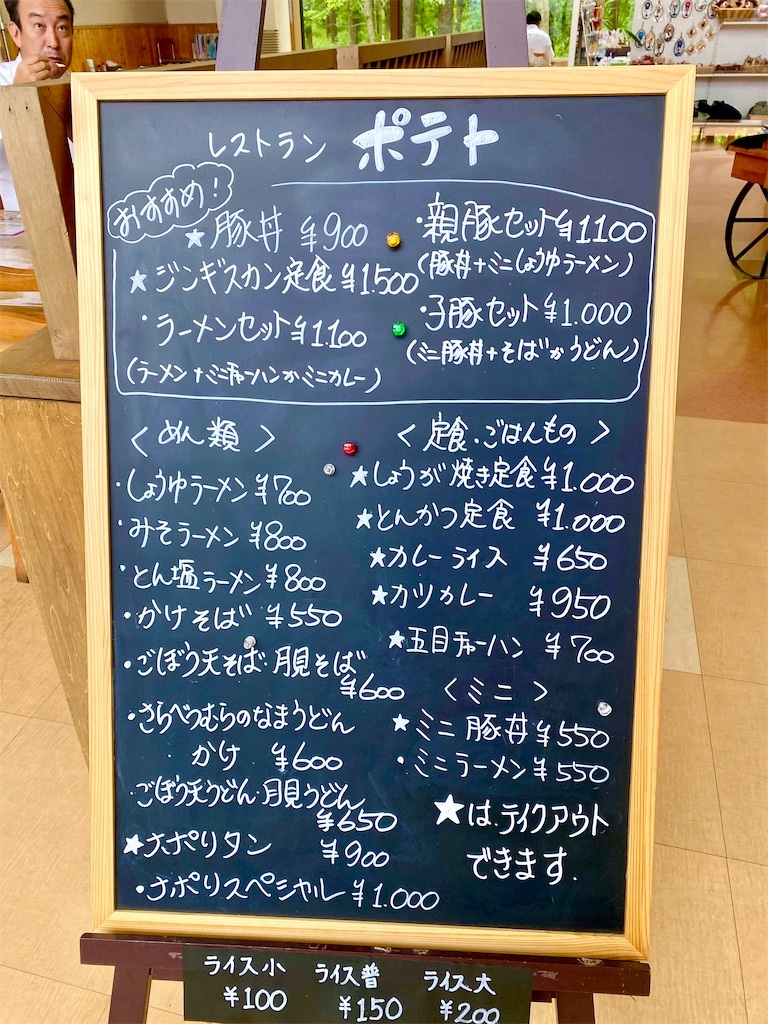 レストラン ポテト
おすすめ!
★豚丼 ¥900
★ジンギスカン定食 ¥1.500
・ラーメンセット ¥1.100
(ラーメン+ミニチャーハンかミニカレー)
・親豚セット ¥1100
(豚丼+ミニしょうゆラーメン)
・子豚セット ¥1.000
(ミニ豚丼+そばかうどん)
<めん類>
・しょうゆラーメン ¥700
・みそラーメン ¥800
・とん塩ラーメン ¥800
・かけそば ¥550
・ごぼう天そば・月見そば
¥600
・さらべつむらのなまうどん
かけ ¥600
・ごぼう天うどん・月見うどん
¥650
★ナポリタン ¥900
・ナポリスペシャル ¥1.000
<定食・ごはんもの>
★しょうが焼き定食 ¥1.000
★とんかつ定食 ¥1.000
★カレーライス ¥650
★カツカレー ¥950
★五目チャーハン ¥700
<ミニ>
★ミニ豚丼 ¥550
・ミニラーメン ¥550
★は、テイクアウト
できます.
ライス小 ライス普 ライス大
¥100 ¥150 ¥200